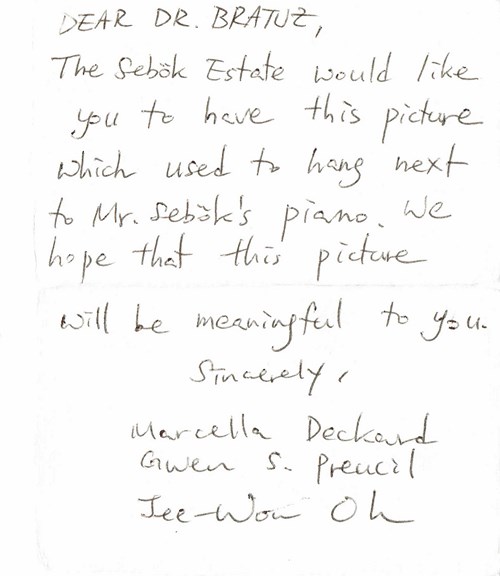 DEAR DR. BRATUŽ,
The Sebök Estate would like
you to have this picture
which used to hang next
to Mr. Sebök's piano. We
hope that this picture
will be meaningful to you.
Sincerely,
Marcella Deckard
Gwen S. Preucil
Jee-Won Oh